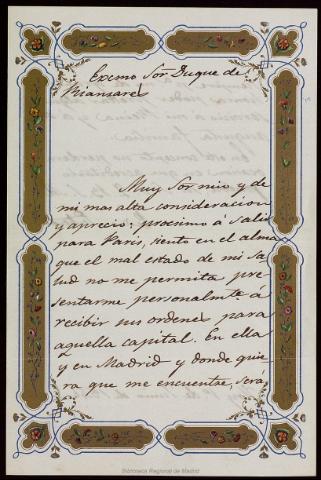 Exmo Sor Duque de
Rianzarel
Muy Sor mio y de
mi mas alta consideracion
y aprecio; procsimo á Salir
para Paris, siento en el alma
que el mal estado de mi Sa-
lud no me permita pre
sentarme personalmte á
recibir sus ordenes para
aquella capital. En ella
y en Madrid y donde quie
ra que me encuentre, será
Biblioteca Regional de Madrid